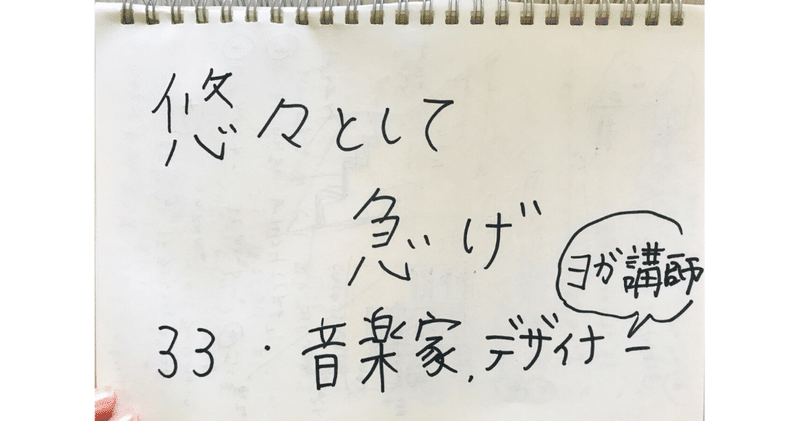 悠々として
急げ
ヨガ講師
33・音楽家,デザイナー